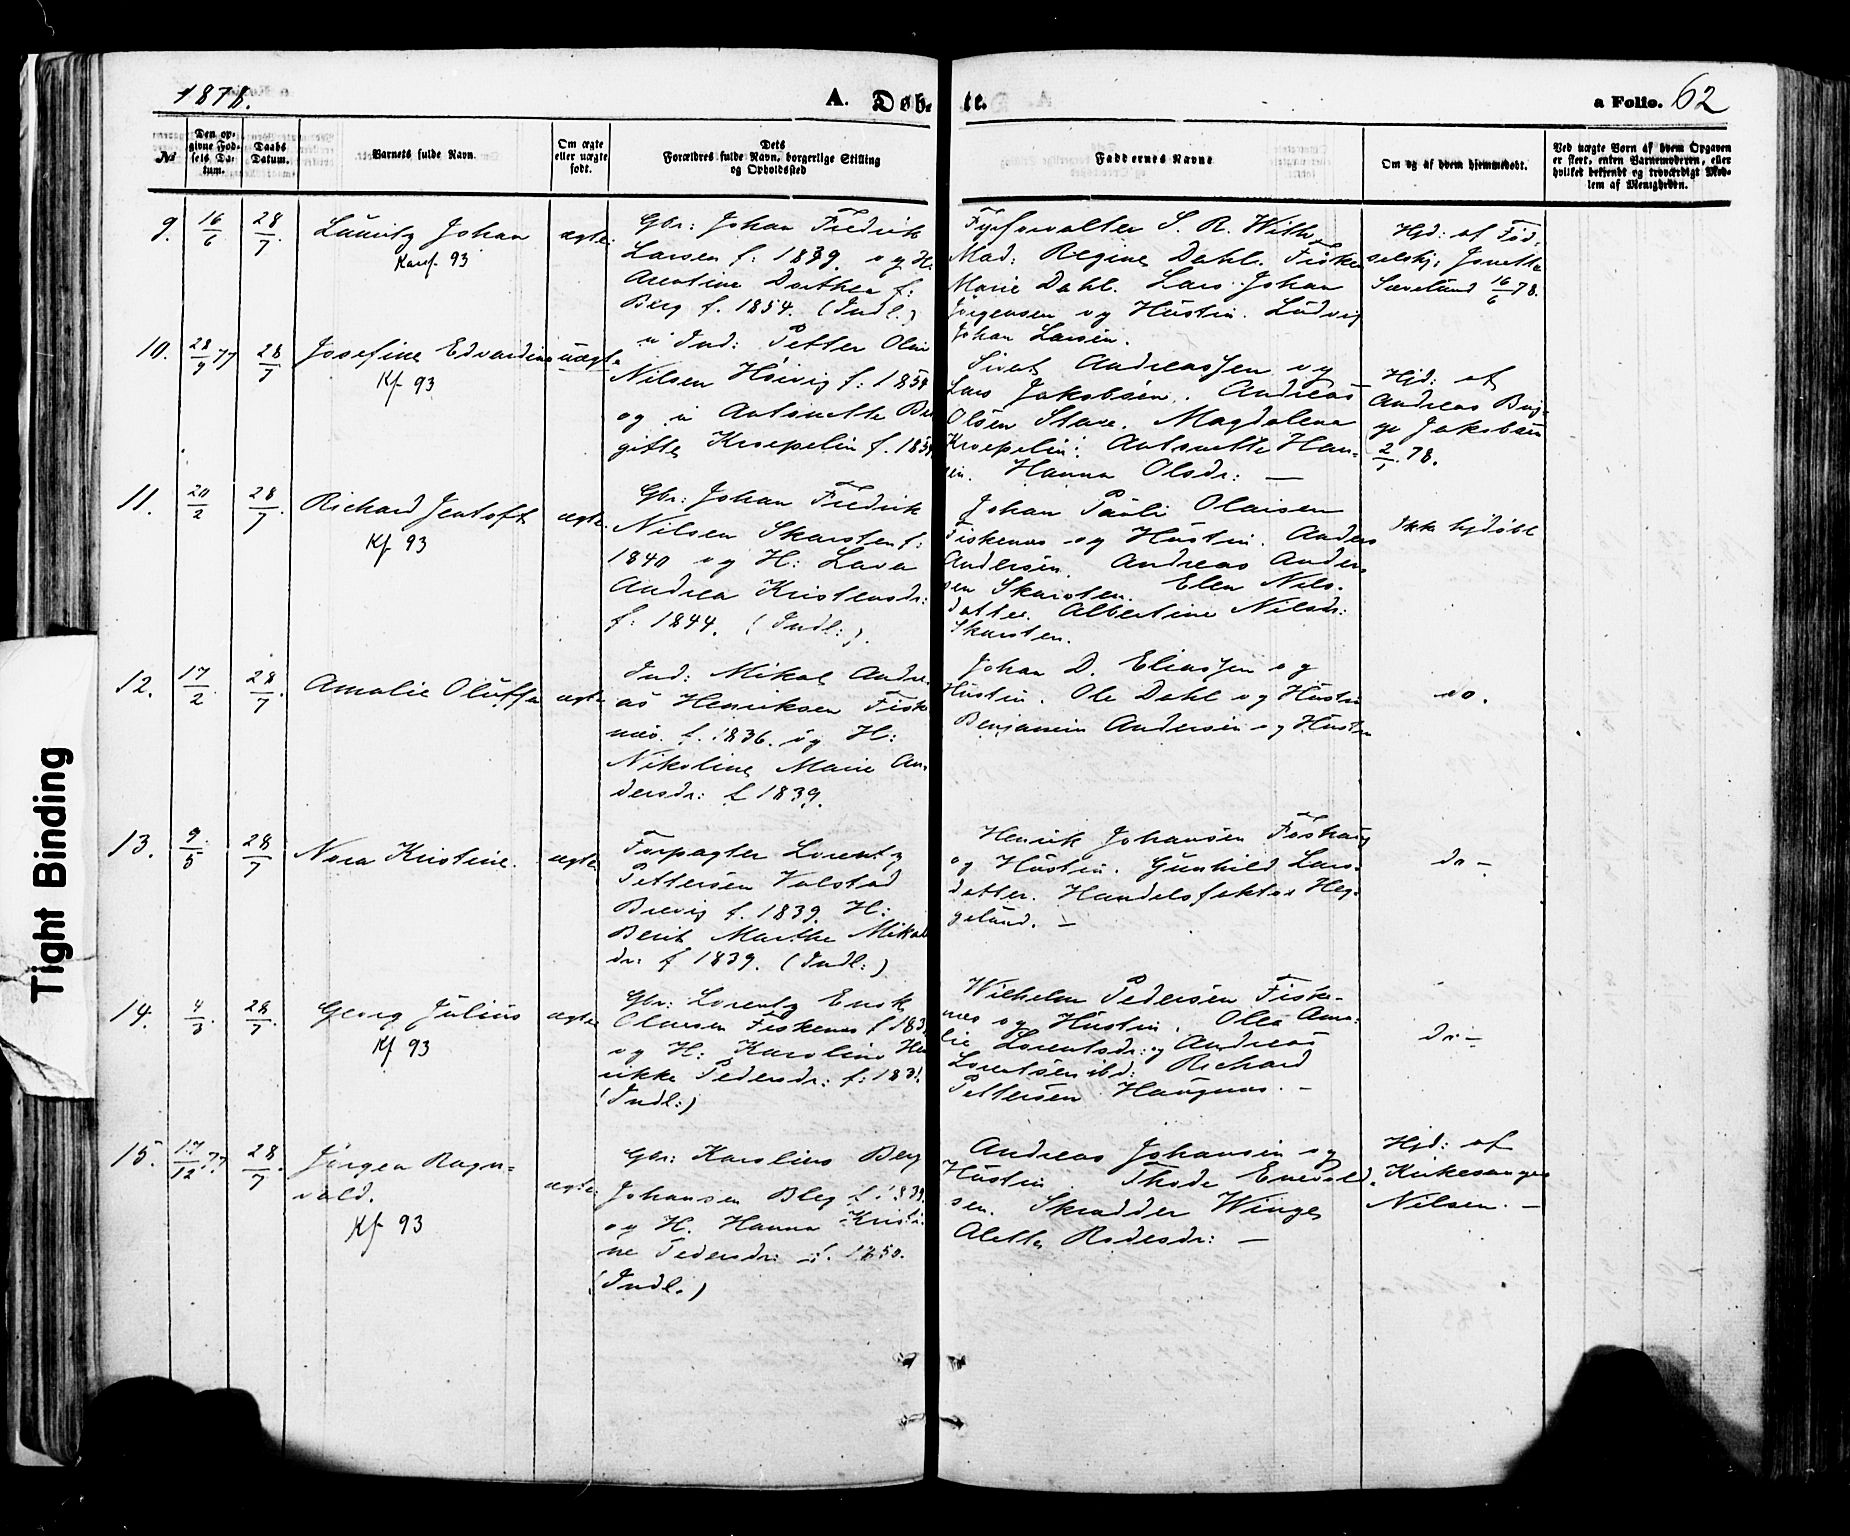 1878.
A. Døb-
te.
a Folio. 62
№
Den op-
givne Fød-
sels Da-
tum.
Daabs
Datum.
Barnets fulde Navn.
Om ægte
eller uægte
født.
Dets
Forældres fulde Navn, borgerlige Stilling
og Opholdssted
Faddernes Navne
Om og af hvem hjemmedøbt.
Ved uægte Børn af hvem Opgaven
er skeet, enten Barnemoderen, eller
hvilket bekjendt og troværdigt Med-
lem af Menigheden.
9.
16/6
28/7.
Lauritz Johan
Konf. 93
ægte.
Gbr: Johan Fredrik
Larsen f: 1839. og H:
Arentine Dorthea f:
Berg f. 1854. (Indl.)
Fyrforvalter S. R. With
Mad: Regine Dahl. Fisken
Marie Dahl. Lars Johan
Jørgensen og Hustru. Ludvig
Johan Larsen.
Hjd: af Fød-
selshj: Jonetta
Sovelund 16/6 78.
10.
28/9 77
28/7
Josefine Edvardine
Kf 93
uægte
u Ind: Petter Olai
Nilsen Høivig f: 1854
og u Antonette Bir
gitte Kroepelin f. 1854
Sivert Andreassen og
Lars Jakobsen. Andreas
Olsen Stave. Magdalena
Kroepelin. Antonette Han-
sen. Hanna Olsdr: —
Hjd: af
Andreas Buj-
ge Jakobsen
2/1. 78.
11.
20/2
28/7.
Richard Jentoft
Kf 93
ægte.
Gbr: Johan Fredrik
Nilsen Skarsten f:
1840 og H: Lava
Andrea Kristensdr:
f: 1844. (Indl:).
Johan Pauli Olaisen
Fiskenes og Hustru. Anders
Andersen. Andreas Anders
sen Skarsten. Elen Nils-
datter. Albertine Nilsdr:
Skarsten.
Ikke hjdøbt
12.
17/2.
28/7.
Amalie Oluffa
ægte
Ind: Mikal Andre-
as Henriksen Fiske
næs. f. 1836. og H:
Nikoline Marie An-
dersdr: f 1839.
Johan D. Eliassen og
Hustru. Ole Dahl og Hustru
Benjamin Andersen og Hustru
do.
13.
9/5
28/7
Nora Kristine.
ægte
Forpagter Lorentz
Pettersen Valstad
Brevig f. 1839. H:
Berit Marthe Mikal
dr: f 1839. (Indl:)
Henrik Johansen Foshaug
og Hustru. Gunhild Lars-
datter. Handelsfaktor Heg-
gelund. —
do —
14.
4/3.
28/7.
Georg Julius
Kf 93
ægte
Gbr: Lorentz Enok
Olavsen Fiskenes f 183
og H: Karoline Hen
rikke Pedersdr: f: 183
(Indl:)
Wilhelm Pedersen Fiske-
nes og Hustru. Olea Ama-
lie Lorentsdr: og Andreas
Lorentsen ibd: Richard
Pettersen Haugnes. —
do —
15.
17/12 77
28/7.
Jørgen Ragn-
vald.
Kf 93
ægte
Gbr: Karolius Berg
Johansen Bleg f. 1839.
og H. Hanna Kristi
ne Pedersdr: f. 1850.
(Indl.)
Andreas Johansen og
Hustru. Thode Enevold-
sen. Skrædder Winge
Alette Rodesdr: —
Hjd: af
Kirkesanger
Nilsen. —
Tight Binding